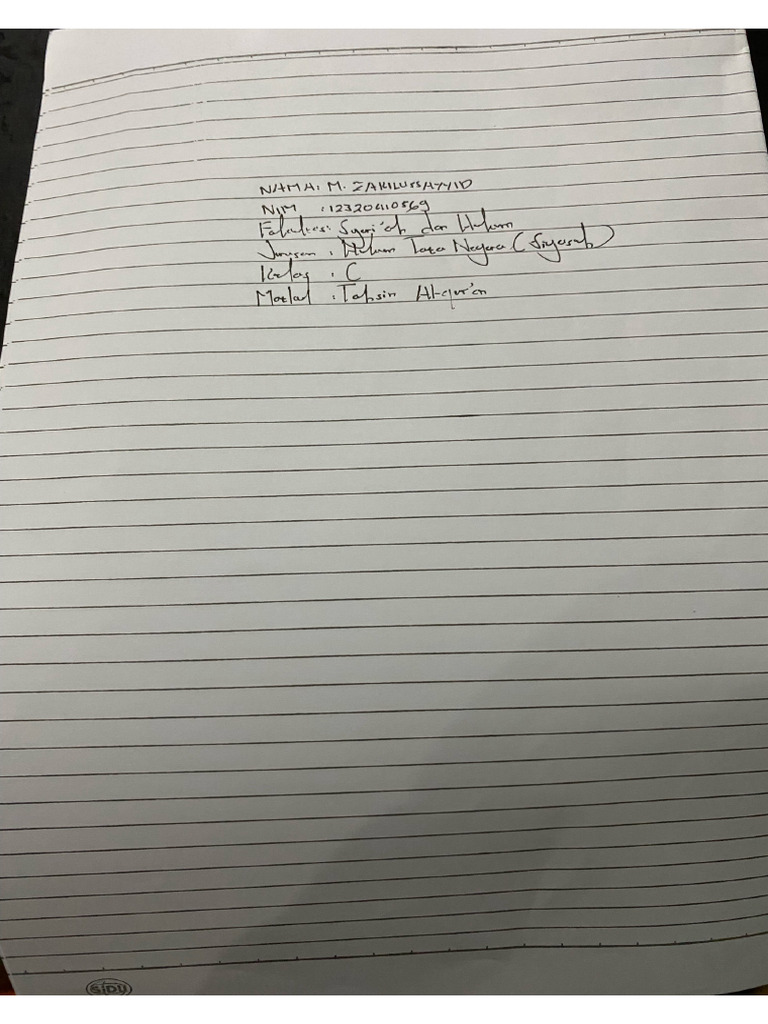 NAMA: M. ZAKILUSSAYYID
NIM : 12320410569
Fakultas: Syari'ah dan Hukum
Jurusan : Hukum Tata Negara (Siyasah)
Kelas : C
Matkul : Tahsin Al-qur'an
SIDU